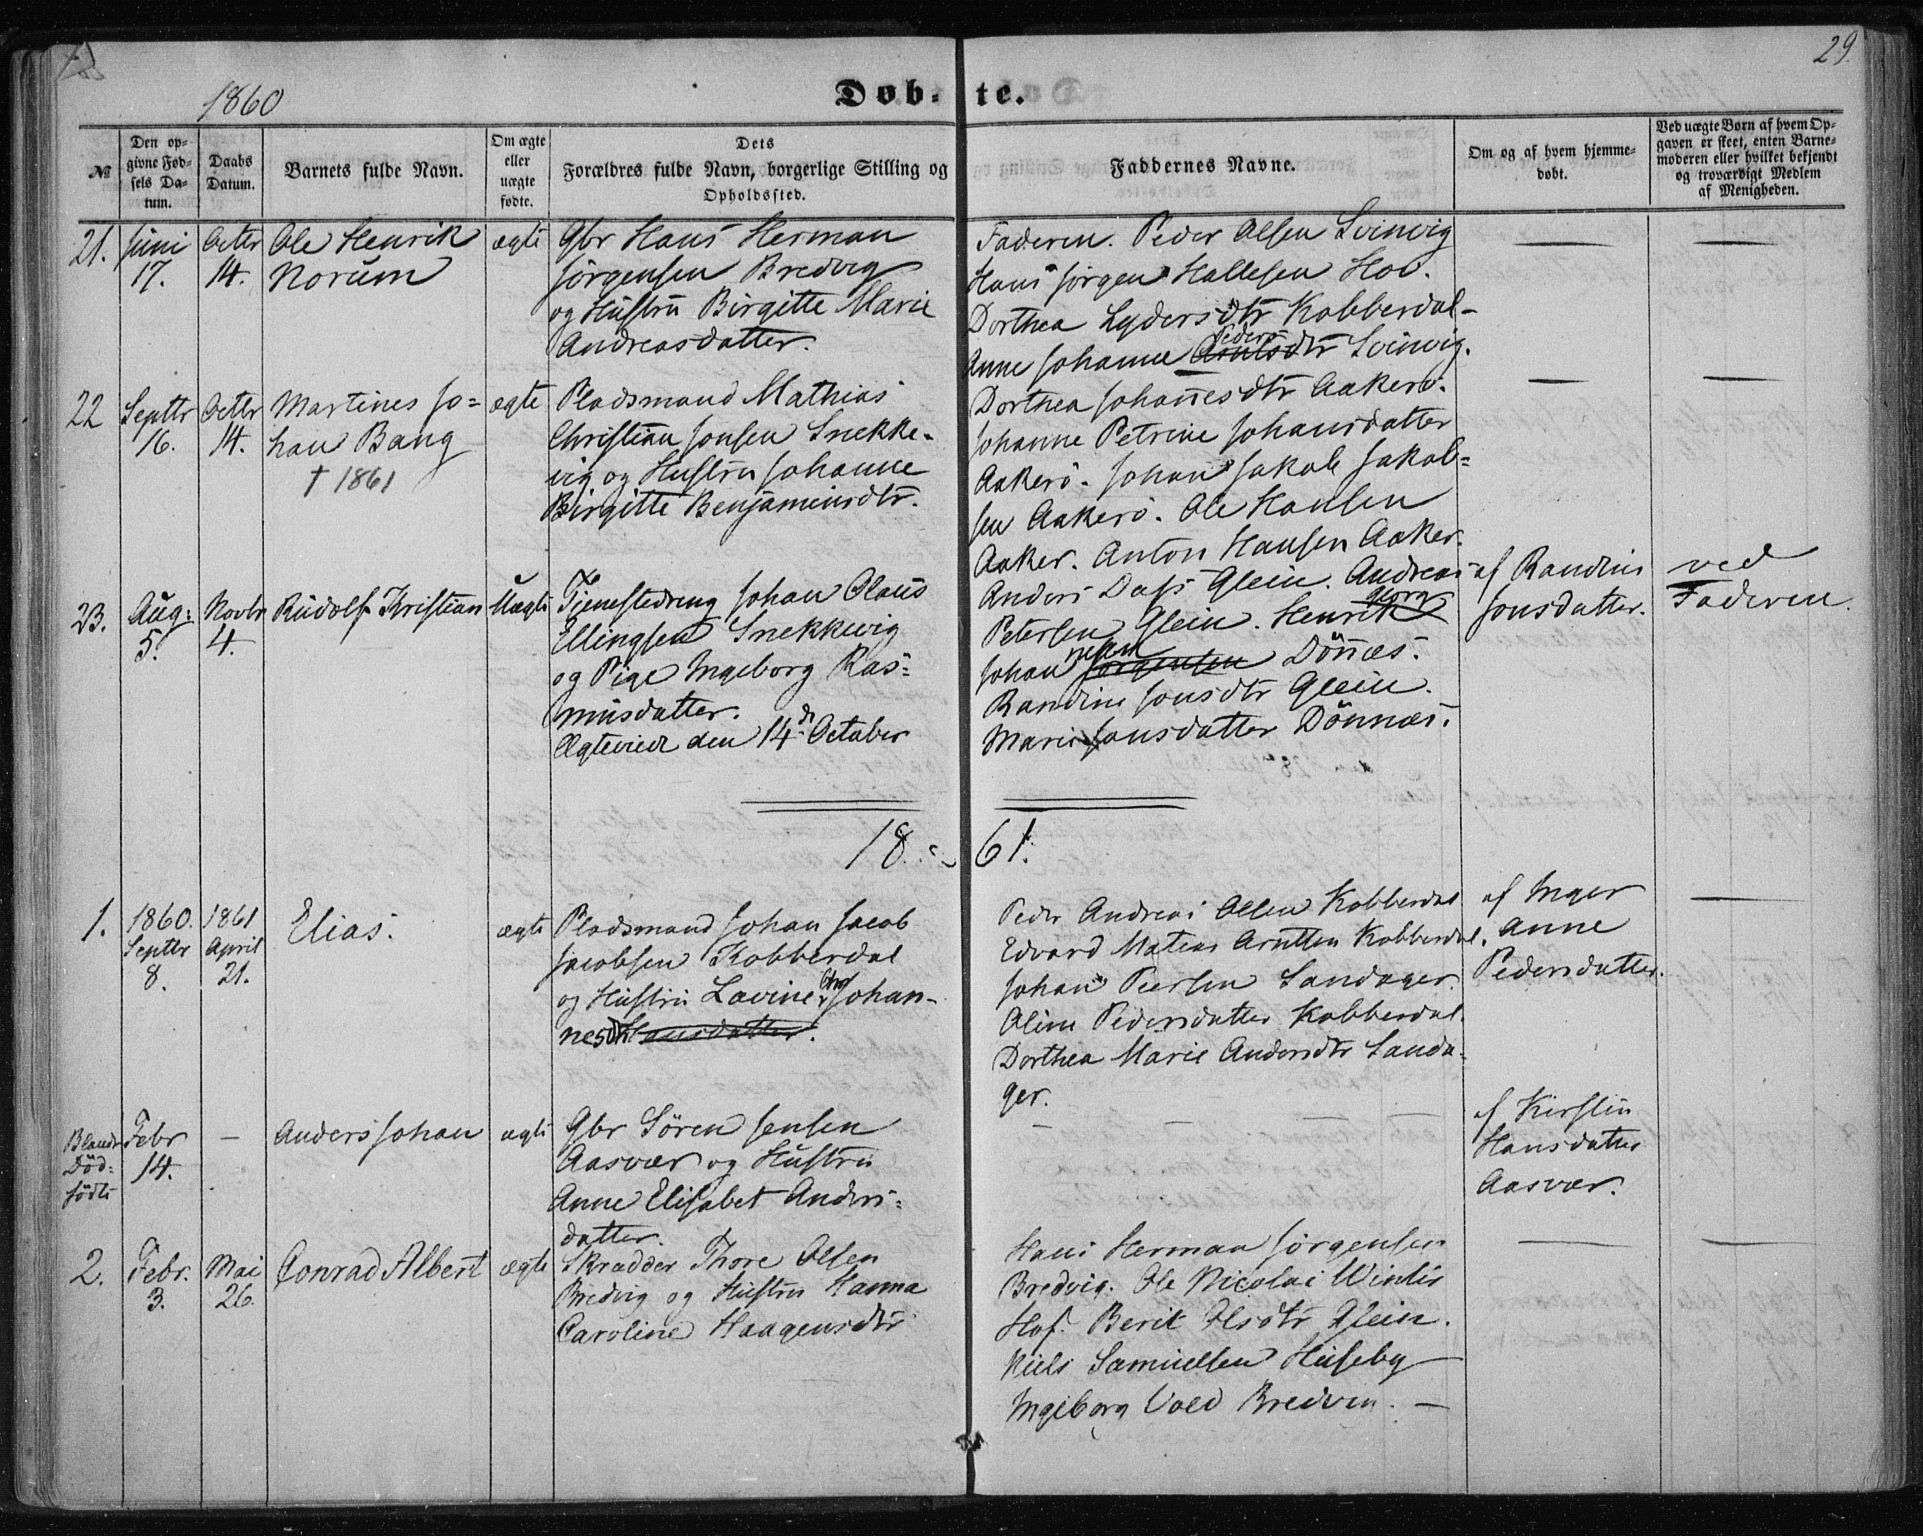 29.
1860
Døb-te.
№
Den op-
givne Fød-
sels Da-
tum.
Daabs
Datum.
Barnets fulde Navn.
Om ægte
eller
uægte
fødte.
Dets
Forældres fulde Navn, borgerlige Stilling og
Opholdssted.
Faddernes Navne.
Om og af hvem hjemme-
døbt.
Ved uægte Børn af hvem Op-
gaven er skeet, enten Barne-
moderen eller hvilket bekjendt
og troværdigt Medlem
af Menigheden.
21.
Juni
17.
Octer
14.
Ole Henrik
Norum
ægte
Gbr Hans Herman
Jörgensen Bredvig
og Hustru Birgitte Marie
Andreasdatter.
Faderen. Peder Olsen Svinvig
Hans Jörgen Hallesen Hov.
Dorthea Lydersdtr Kobberdal
Anne Johanne Peders Arntsdtr Svinvig.
22
Septbr
16.
Octer
14.
Martines Jo=
han Bang
† 1861
ægte
Pladsmand Mathias
Christian Jonsen Snekke-
vig og Hustru Johanne
Birgitte Benjaminsdtr.
Dorthea Johannesdtr Aakerö.
Johanne Petrine Johansdatter
Aakerö. Johan Jakob Jakob=
sen Aakerö. Ole Hansen
Aaker. Anton Hansen Aaker.
23.
Aug:
5.
Novbr
4.
Rudolf Kristian
Uægte
Tjenestedreng Johan Olaus
Ellingsen Snekkevig
og Pige Ingeborg Ras=
musdatter.
Ægteviede den 14de October
Anders Dass Glein. Andreas
Petersen Glein. Henrik Georg
Johan Jörgensen Dönnes.
Randine Jonsdtr Glein.
Marie Jonsdatter Dönnæs.
af Randine
Jonsdatter.
ved
Faderen.
18 61.
1.
1860.
Septbr
8.
1861
April
21.
Elias.
ægte
Pladsmand Johan Jacob
Jacobsen Kobberdal
og Hustru Lovine Johan-
nesdtr Hansdatter.
Peder Andreas Olsen Kobberdal
Edvard Matias Arntsen Kobberdal.
Johan Peersen Sandager.
Oline Pedersdatter Kobberdal.
Dorthea Marie Andersdtr Sanda-
ger.
af Inger
Anne
Pedersdatter.
Blandt
Död=
födte
Febr
14.
Anders Johan
ægte
Gbr Sören Jensen
Aasvær og Hustru
Anne Elisabet Anders=
datter.
af Kirstin
Hansdatter
Aasvær.
2.
Febr.
3.
Mai
26.
Conrad Albert
ægte
Skrædder Thore Olsen
Bredvig og Hustru Hanna
Caroline Haagensdtr
Hans Herman Jörgensen
Bredvig. Ole Nicolai Winter
Hof. Berit Olsdtr Glein.
Niels Samuelsen Huseby
Ingeborg Vold Bredvin.